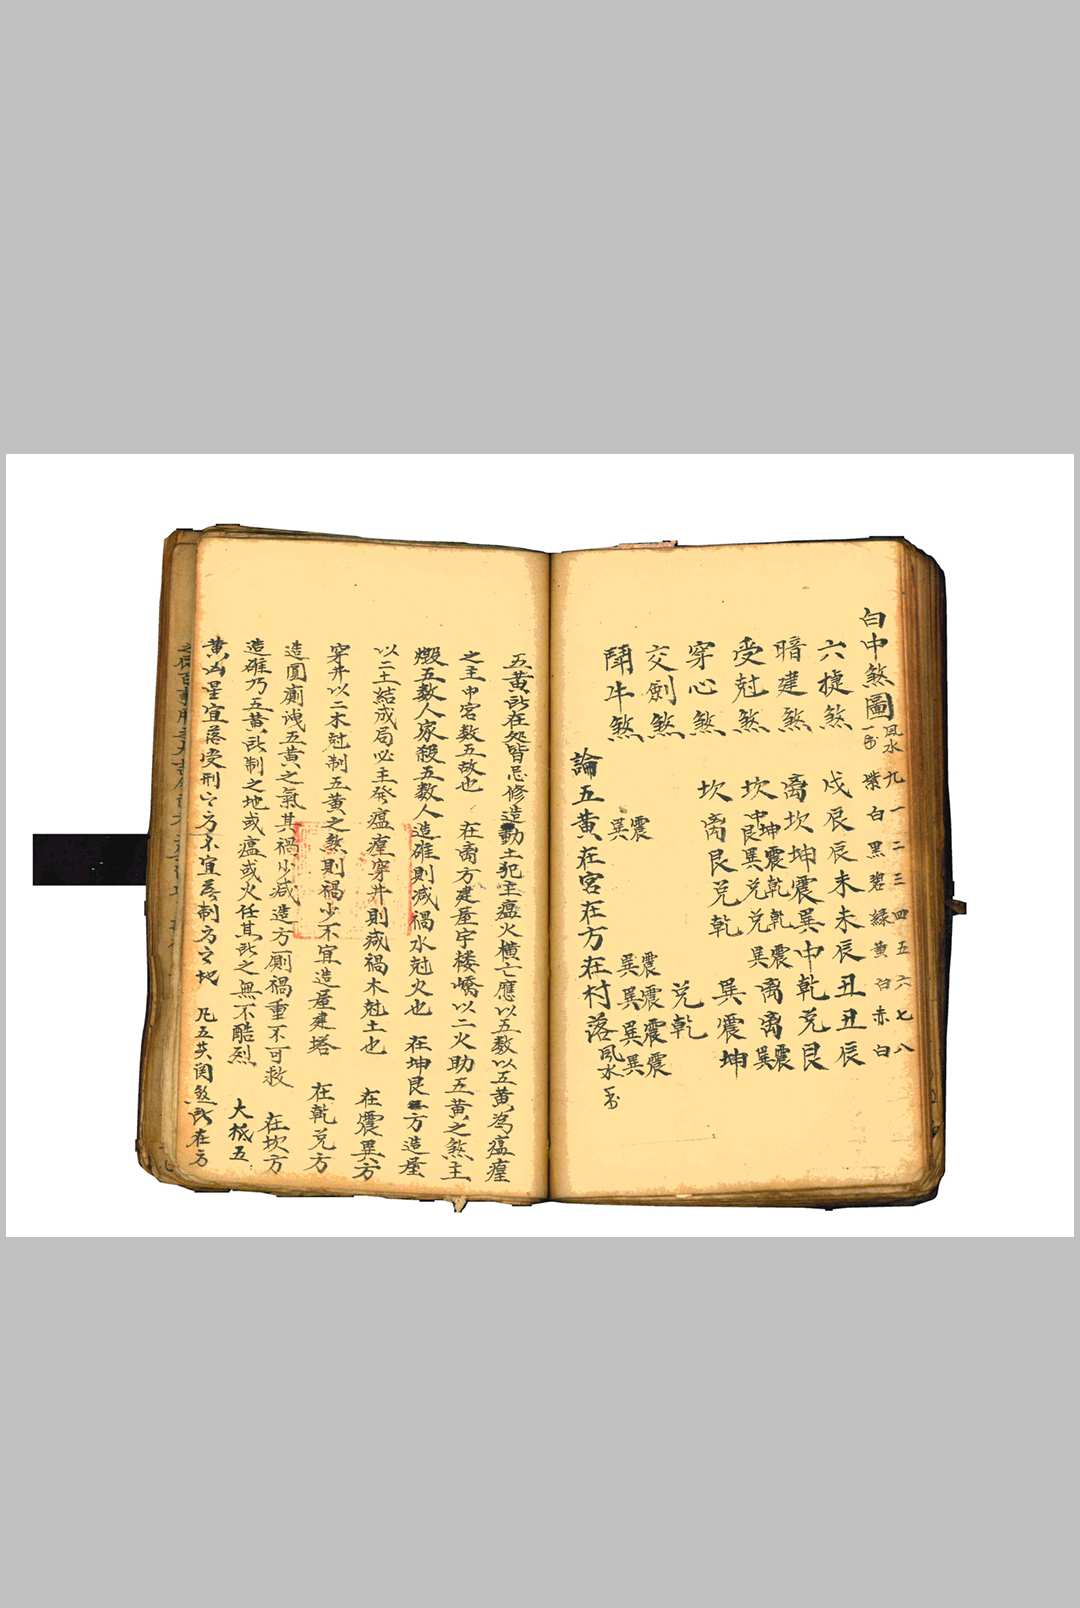 白中煞圖 風水一书
九 一 二 三 四 五 六 七 八
紫 白 黑 碧 綠 黄 白 赤 白
六捷煞 戊 辰 辰 未 未 辰 丑 丑 辰
暗建煞 离 坎 坤 震 巽 中 乾 兑 艮
受尅煞 坎 中坤 艮震 巽乾 兑乾 巽震 离 离 巽震
穿心煞 坎 离 艮 兑 乾 巽 震 坤
交劍煞 兑 乾
鬪牛煞 巽震 巽震 巽震 巽震 巽震
論五黄在宮在方在村落 風水一书
五黄所在処皆忌修造動土犯主瘟火横亡應以五数以五黄為瘟瘟
之主中宮数五故也 在离方建屋宇楼嶠以二火助五黄之煞主
煅五数人家殺五数人造碓則减禍水尅火也 在坤艮二方造屋
以二土結成局必主發瘟瘟穿井則减禍木尅土也 在震巽方
穿井以二木尅制五黄之煞則禍少不宜造屋建塔 在乾兑方
造圓廁洩五黄之氣其禍少减造方廁禍重不可救 在坎方
造碓乃五黄所制之地或瘟或火任其所之無不酷烈 大抵五
黄凶星宜落受刑之方不宜落制方之地 凡五黄関煞所在方